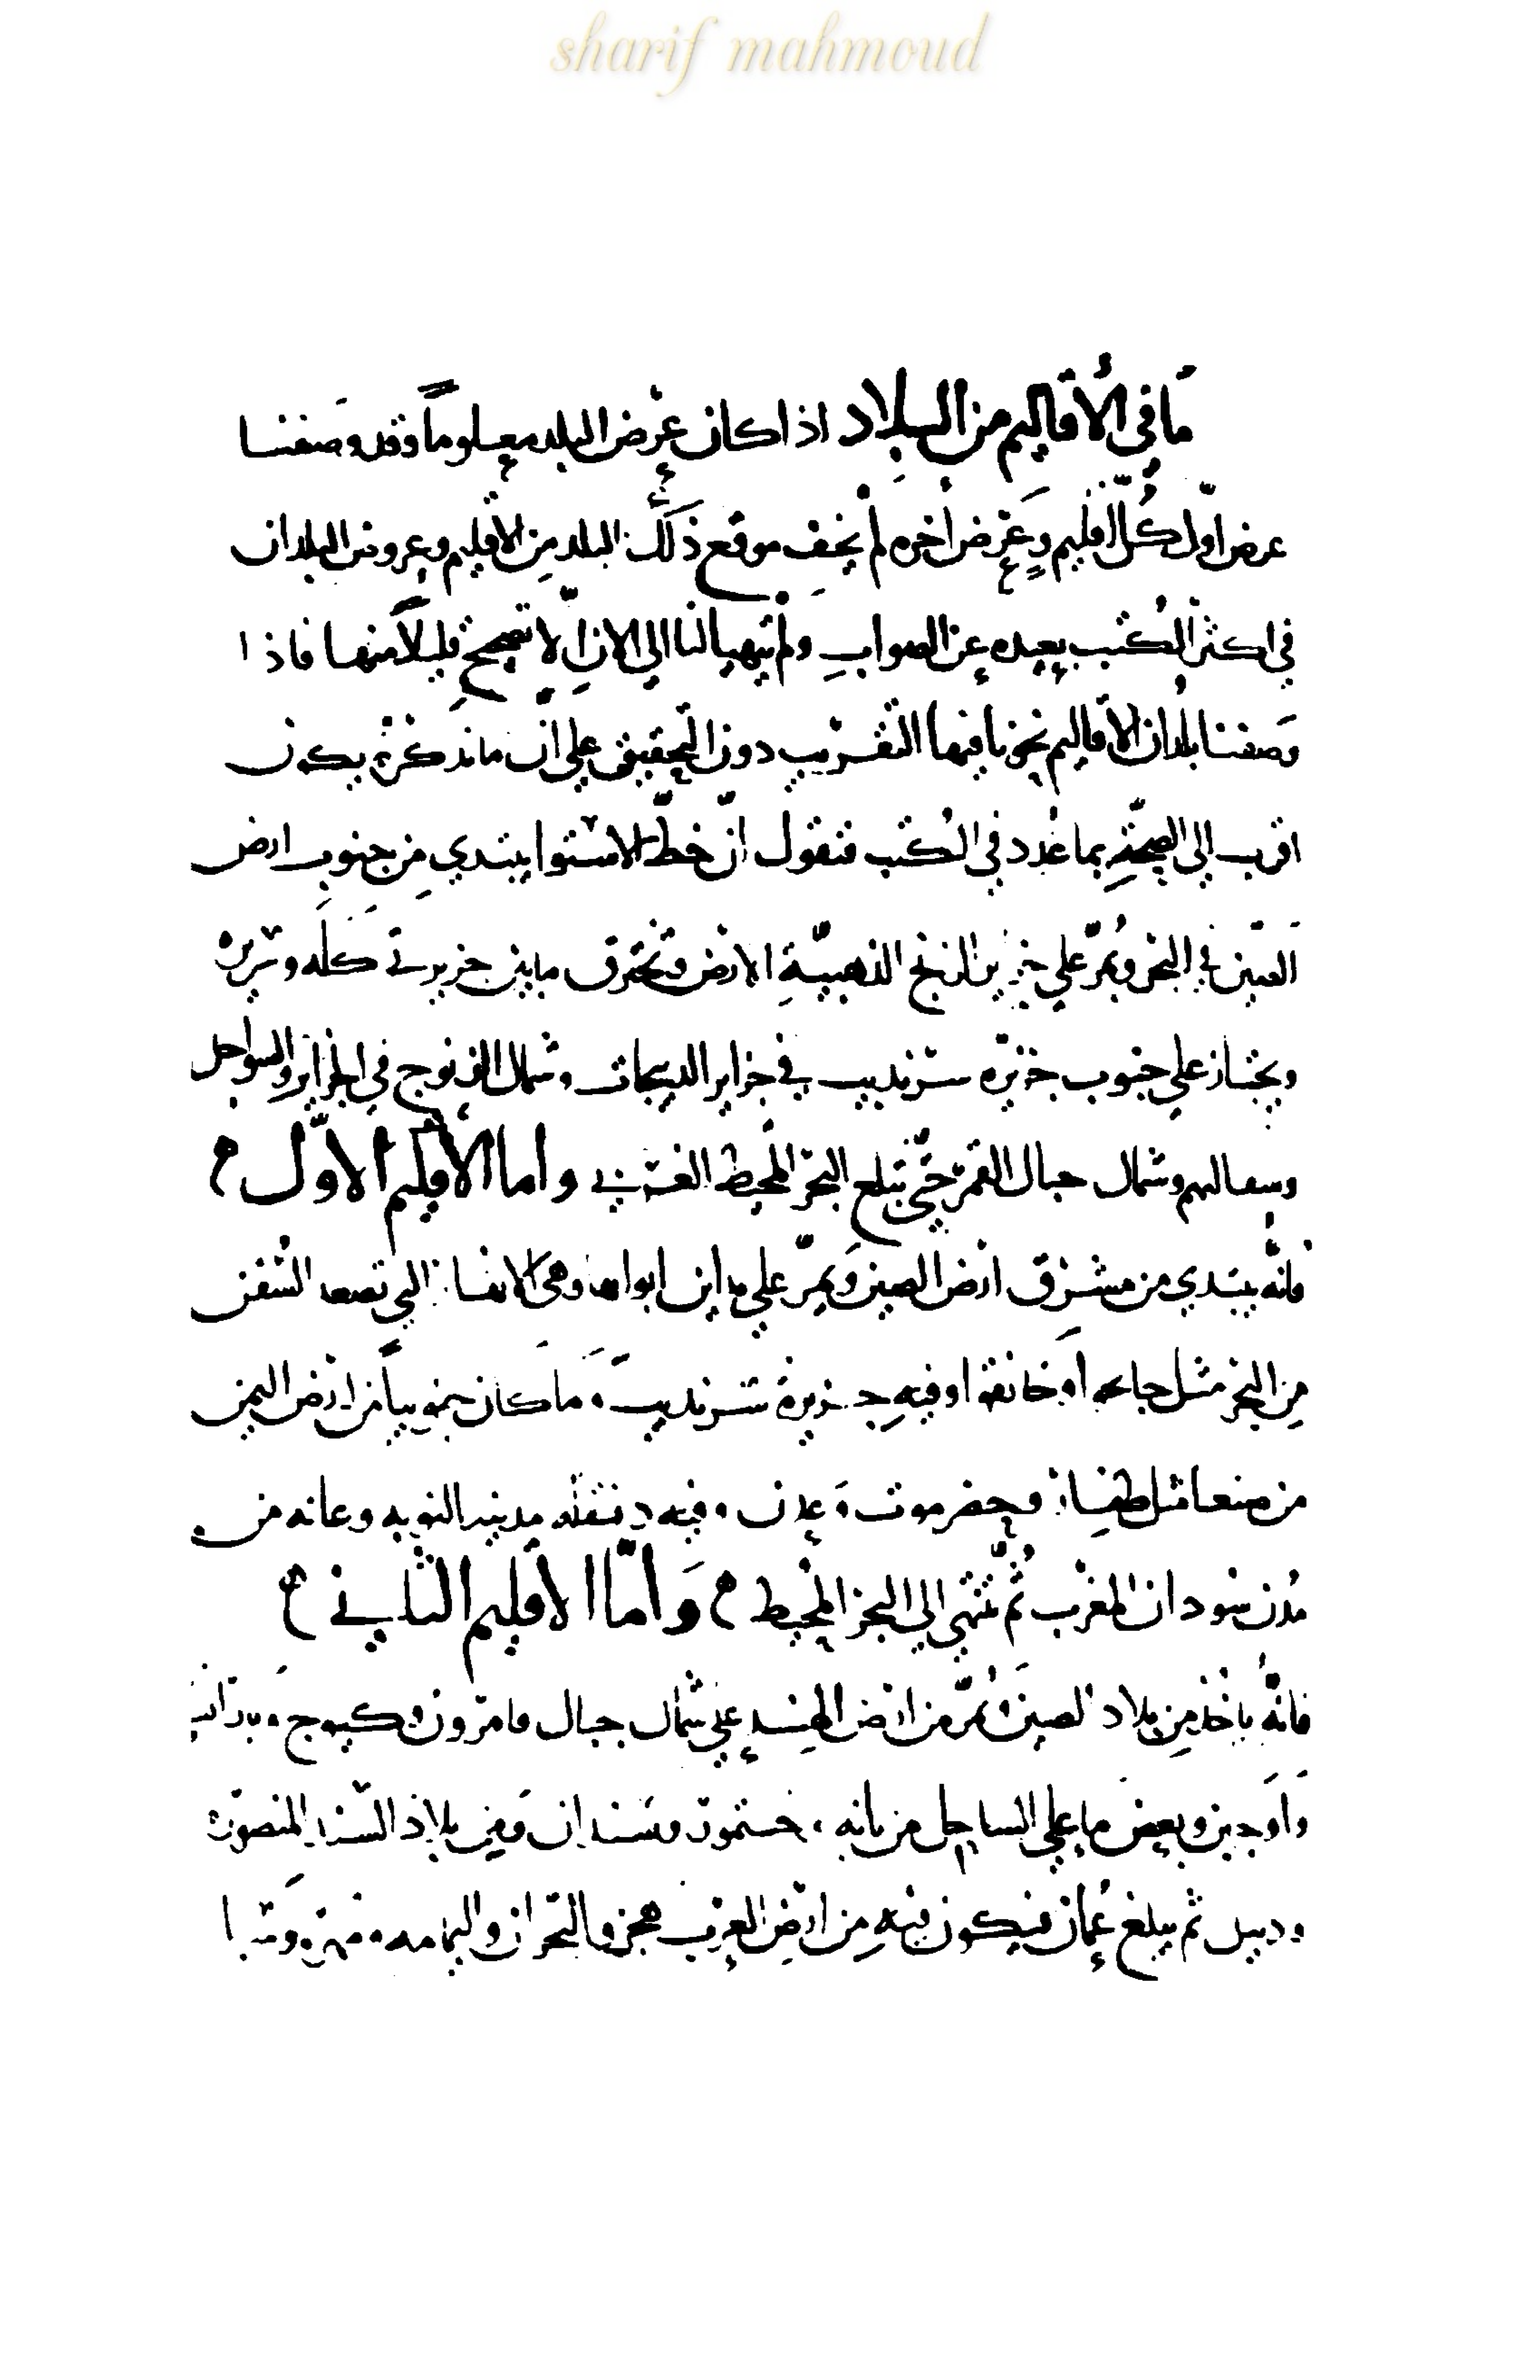 sharif mahmoud
ما في الأقاليم من البلاد اذا كان عرض البلد معلوماً وقد وصفنا
عرض اوّل كُلّ اقليم وعرض اخره لم يخف موقع ذلك البلد من الاقليم وعروض البلدان
في اكثر الكُتب بعيده عن الصواب ولم يتهيا لنا الي الان الّا تصحيح قليلاً منها فاذا
وصفنا بلدان الاقاليم نحونا فيها التقريب دون التحقيق علي انّ ما نذكره يكون
اقرب الي الصحّة بما عُدد في الكُتب فنقول انّ خطّ الاستوا يبتدي من جنوب ارض
الصين في البحر ويمرّ علي جزاير الزنج الذهبيّة الارض وتخترق ما بين جزيرتي كله وسريره
ويجتاز علي جنوب جزيره سرنديب في جزاير الديبجات وشمال الزنوج في الجزاير والسواحل
وسفالهم وشمال جبال القمر حتّي تبلع البحر المحيط الغربي واما الأقليم الاوّل
فانّه يبتدي من مشرق ارض الصين ويمرّ علي مداين ابوابها وهي الانهار التي تصعد السُفن
من البحر مثل خانجو او خانقو او فيه جزيرة سرنديب وما كان جنوبياً من ارض اليمن
من صنعا مثل ظفار وحضرموت وعدن وفيه دنقله مدينه النوبه وغانه من
مُدن سودان المغرب ثُمّ تنتهي الي البحر المحيط وامّا الاقليم الثاني
فانّهُ ياخذ من بلاد الصين ويمرّ من ارض الهند علي شمال جبال قامرون وكنوج وبارانسي
واوجين وبعض ما علي الساحل من تانه وصيمور وسندان وفي بلاد السند المنصوره
وديبل ثم يبلغ عُمان فيكون فيه من ارض العرب هجر والبحران واليمامه ومهره وسبا